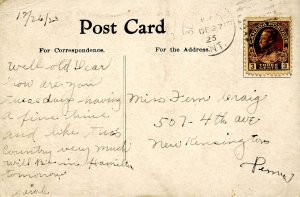 12/26/23
Post Card
For Correspondence.
For the Address.
DE 27
23
ONT.
3 3
Well old Dear
how are you
these days having
a fine time
and like this
Country very much
will be in Hamilton
tomorrow
Sarah
Miss Fern Craig
507-4th ave
New Kensington
Penna